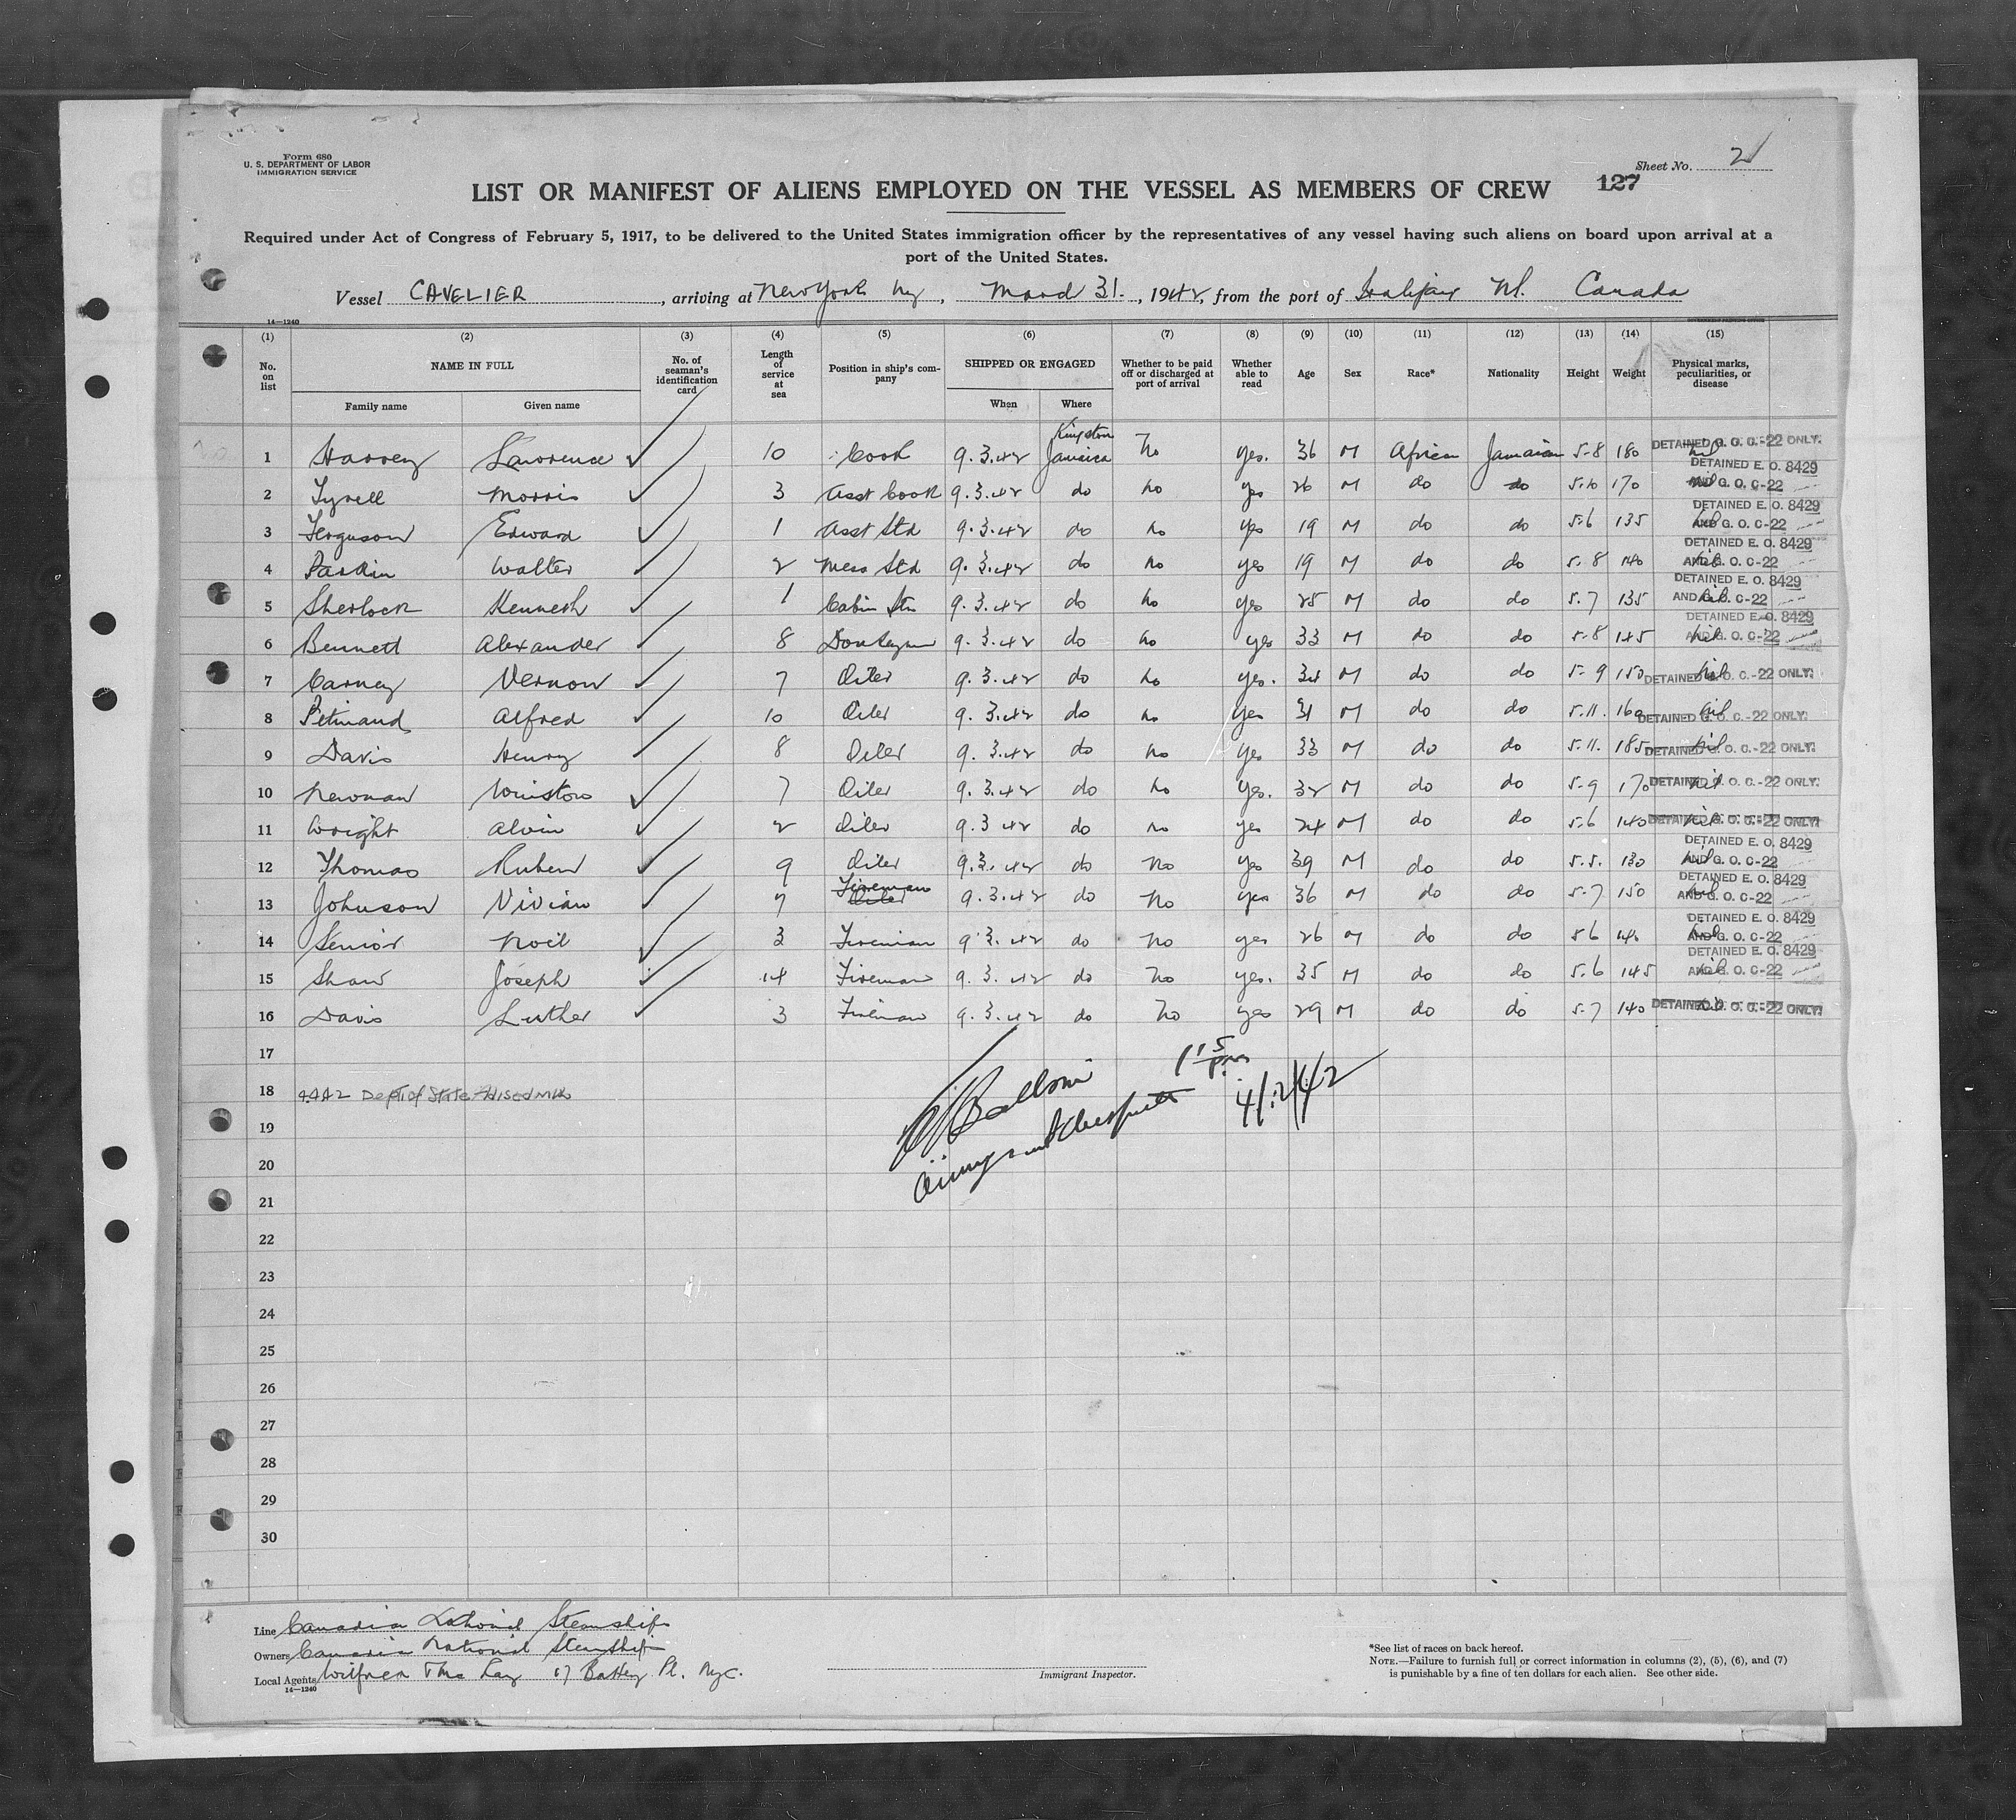 Form 680
U. S. DEPARTMENT OF LABOR
IMMIGRATION SERVICE
Sheet No. 2
127
LIST OR MANIFEST OF ALIENS EMPLOYED ON THE VESSEL AS MEMBERS OF CREW
Required under Act of Congress of February 5, 1917, to be delivered to the United States immigration officer by the representatives of any vessel having such aliens on board upon arrival at a
port of the United States.
Vessel CAVELIER, arriving at New York Ny, March 31., 1942, from the port of Halifax NS. Canada
14—1240
(1) (2) (3) (4) (5) (6) (7) (8) (9) (10) (11) (12) (13) (14) (15)
No. on list NAME IN FULL Family name Given name No. of seaman's identification card Length of service at sea Position in ship's company SHIPPED OR ENGAGED When Where Whether to be paid off or discharged at port of arrival Whether able to read Age Sex Race* Nationality Height Weight Physical marks, peculiarities, or disease
1 Harvey Lawrence 10 Cook 9.3.42 Kingston Jamaica No yes. 36 M African Jamaican 5-8 180 nil DETAINED G. O. C.-22 ONLY.
2 Tyrell Morris 3 Asst Cook 9.3.42 do no yes 26 M do do 5.10 170 nil DETAINED E. O. 8429 AND G. O. C-22
3 Ferguson Edward 1 Asst Std 9.3.42 do no yes 19 M do do 5.6 135 nil DETAINED E. O. 8429 AND G. O. C-22
4 Parkin Walter 2 Mess Std 9.3.42 do no yes 19 M do do 5.8 140 nil DETAINED E. O. 8429 AND G. O. C-22
5 Sherlock Kenneth 1 Cabin Std 9.3.42 do no yes 25 M do do 5.7 135 nil DETAINED E. O. 8429 AND G. O. C-22
6 Bennett Alexander 8 9.3.42 do no yes 33 M do do 5-8 145 nil DETAINED E. O. 8429 AND G. O. C-22
7 Carney Vernon 7 Oiler 9.3.42 do no yes. 34 M do do 5-9 150 nil DETAINED G. O. C.-22 ONLY.
8 Alfred 10 Oiler 9.3.42 do no yes 31 M do do 5.11. 160 nil DETAINED G. O. C.-22 ONLY.
9 Davis Henry 8 Oiler 9.3.42 do no yes 33 M do do 5.11. 185 nil DETAINED G. O. C.-22 ONLY.
10 Newman Winston 7 Oiler 9.3.42 do no yes. 32 M do do 5-9 170 nil DETAINED G. O. C.-22 ONLY.
11 Wright Alvin 2 Oiler 9.3 42 do no yes 24 M do do 5.6 140 nil DETAINED G. O. C.-22 ONLY.
12 Thomas Ruben 9 Oiler 9.3.42 do No yes 39 M do do 5.5. 130 nil DETAINED E. O. 8429 AND G. O. C-22
13 Johnson Vivian 7 Fireman Oiler 9.3.42 do No yes 36 M do do 5-7 150 nil DETAINED E. O. 8429 AND G. O. C-22
14 Senior Noil 3 Fireman 9.3.42 do No yes 26 M do do 5 6 140 nil DETAINED E. O. 8429 AND G. O. C-22
15 Shaw Joseph 14 Fireman 9.3.42 do No yes. 35 M do do 5.6 145 nil DETAINED E. O. 8429 AND G. O. C-22
16 Davis Luther 3 Fireman 9.3.42 do No yes 29 M do do 5-7 140 nil DETAINED G. O. C.-22 ONLY.
17
18 Dept of State
19
20
21
22
23
24
25
26
27
28
29
30
1 15 pm
4/2/42
Line Canadian National Steamships
Owners Canadian National Steamship
Local Agents 17 Battery Pl. Nyc.
14—1240
Immigrant Inspector.
*See list of races on back hereof.
NOTE.—Failure to furnish full or correct information in columns (2), (5), (6), and (7)
is punishable by a fine of ten dollars for each alien. See other side.